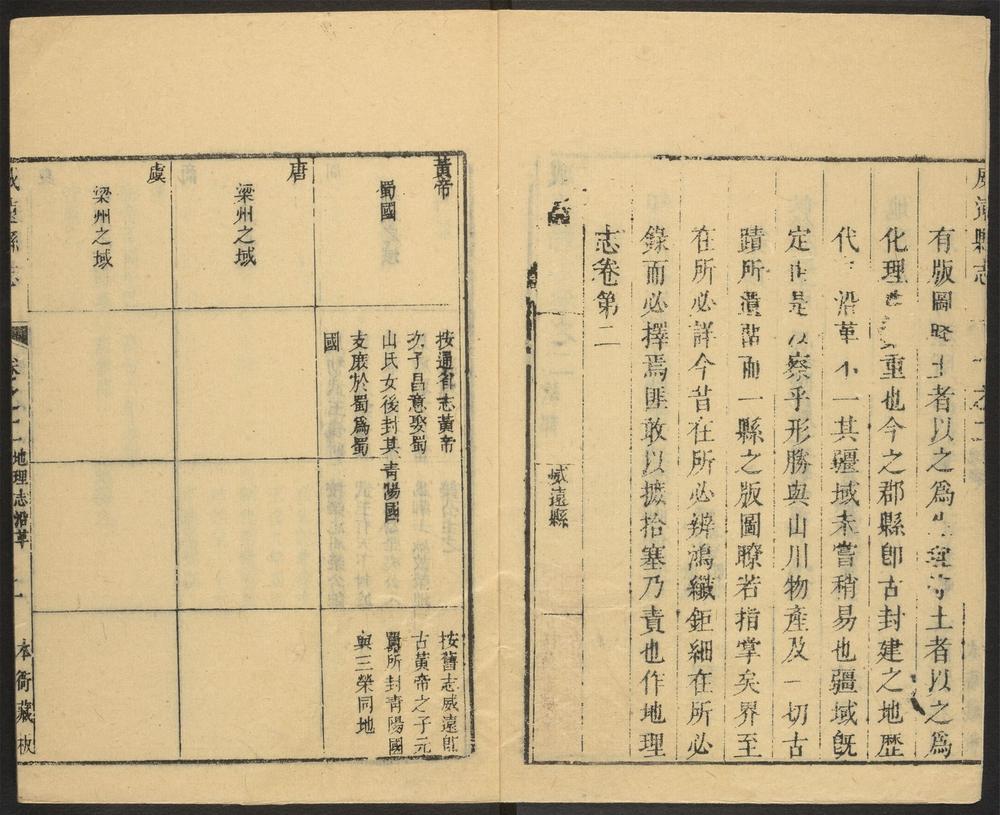 威遠縣志
有版圖 土者以之為 土者以之為
化理 重也今之郡縣即古封建之地歷
代 沿革不一其疆域未嘗稍易也疆域既
定 是以察乎形勝與山川物產及一切古
蹟所遺留而一縣之版圖瞭若指掌矣界至
在所必詳今昔在所必辨鴻纖鉅細在所必
錄而必擇焉匪敢以摭拾塞乃責也作地理
志卷第二
威遠縣
黃帝
蜀國
按通省志黃帝
次子昌意娶蜀
山氏女後封其
支庶於蜀為蜀
國
青陽國
按舊志威遠即
古黃帝之子元
囂所封青陽國
與三榮同地
唐
梁州之域
虞
梁州之域
威遠縣志 卷之二 地理志沿革 一 本衙藏板